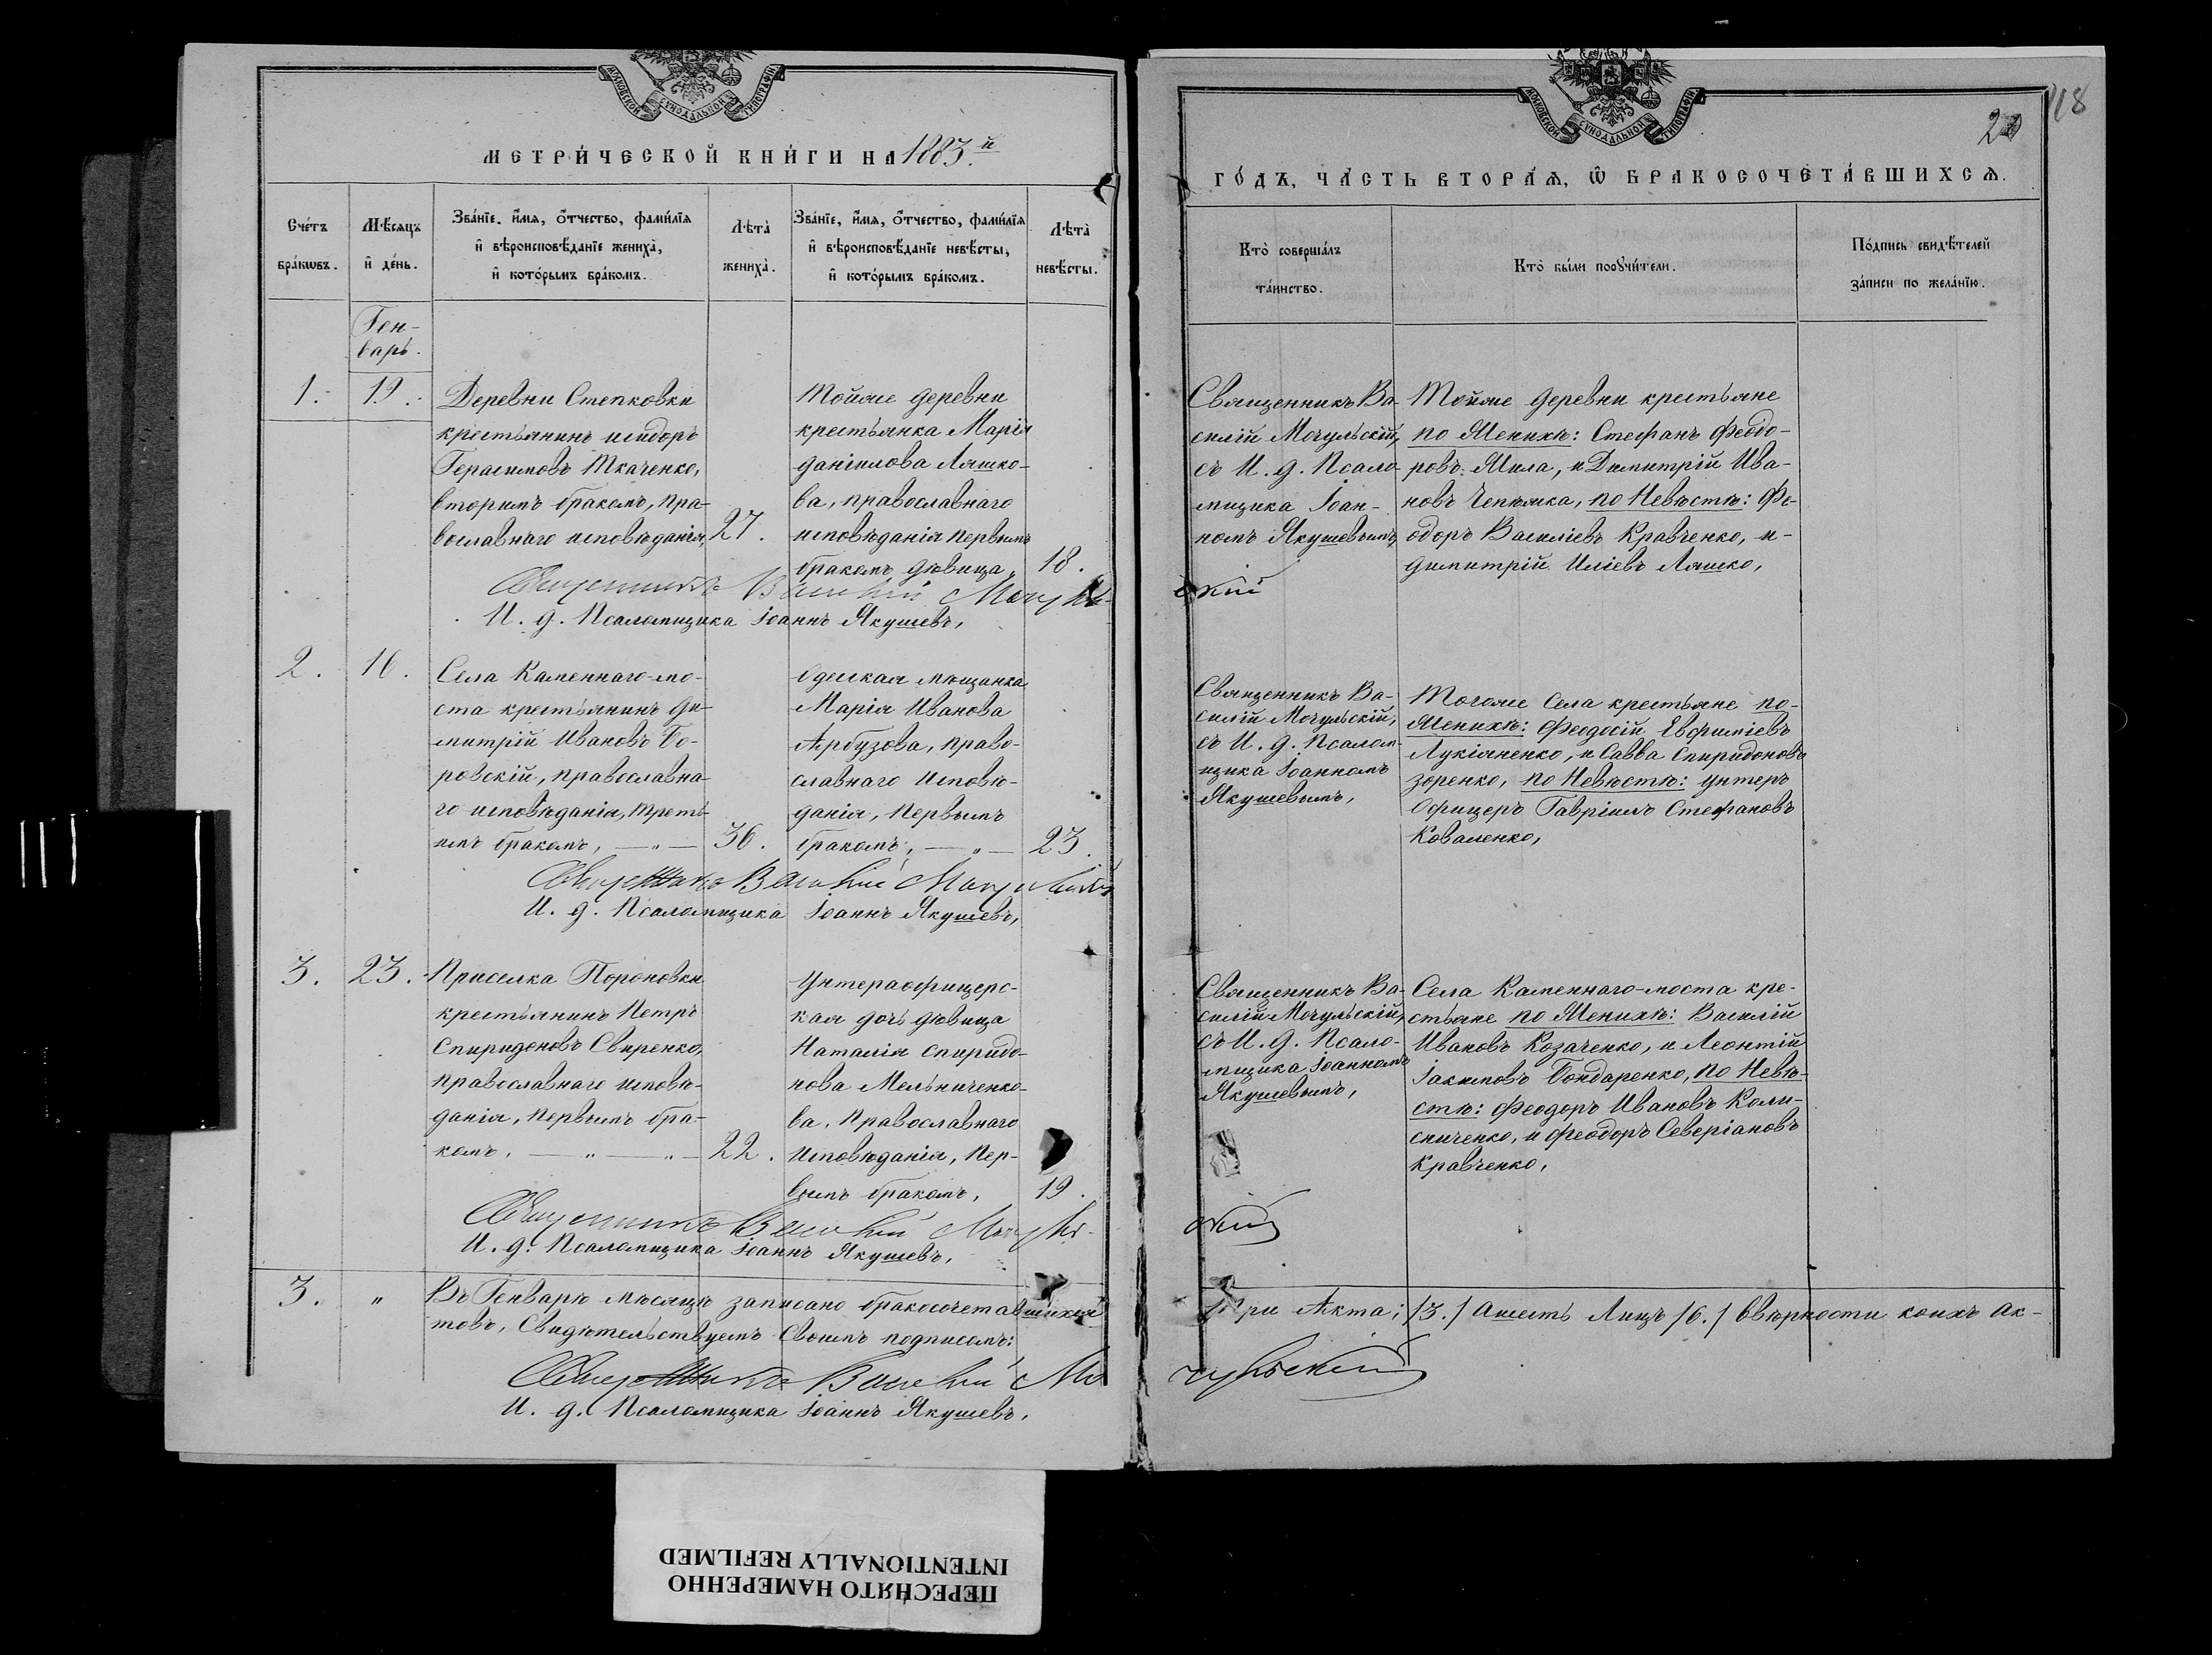 МОСКОВСКОЙ СѴНОДАЛЬНОЙ ТИПОГРАФІИ
МЕТРИ́ЧЕСКОЙ КНИ́ГИ НА 1883.й
Сче́тъ бра́кѡвъ.
Мѣ́сяцъ и҆ де́нь.
Зва́нїе, и҆́мя, о҆́тчество, фами́лїя
и҆ вѣроисповѣ́данїе жениха̀,
и҆ кото́рымъ бра́комъ.
Лѣта̀ жениха̀.
Зва́нїе, и҆́мя, о҆́тчество, фами́лїя
и҆ вѣроисповѣ́данїе невѣ́сты,
и҆ кото́рымъ бра́комъ.
Лѣта̀ невѣ́сты.
Ген-
варь.
1. 19.
Деревни Степковки
крестьянинъ исидоръ
Герасимовъ Ткаченко,
вторымъ бракомъ, пра-
вославнаго исповѣданія, 27.
Тойже деревни
крестьянка Марія
даніилова Ляшко-
ва, православнаго
исповѣданія первымъ
бракомъ дѣвица, 18.
Священникъ Василій Мочуль-
И. д. Псаломщика Іоаннъ Якушевъ,
2. 16.
Села Каменнаго-мо-
ста крестьянинъ ди-
митрій Ивановъ Бо-
ровскій, православна-
го исповѣданія, треть-
имъ бракомъ, — „ — 36.
Одеская мѣщанка
Марія Иванова
Арбузова, право-
славнаго исповѣ-
данія, первымъ
бракомъ, — „ — 23.
Священникъ Василій Мочульскій
И. д. Псаломщика Іоаннъ Якушевъ,
3. 23.
Приселка Пороновки
крестьянинъ Петръ
Спиридоновъ Свиренко,
православнаго исповѣ-
данія, первымъ бра-
комъ, — „ — „ — 22.
Унтераофицерс-
кая дочь дѣвица
Наталія спиридо-
нова Мельниченко-
ва, Православнаго
исповѣданія, пер-
вымъ бракомъ, 19.
Священникъ Василій Мочуль-
И. д. Псаломщика Іоаннъ Якушевъ,
3. „ Въ Генварѣ мѣсяцѣ записано бракосочетавшихся
товъ, Свидѣтельствуемъ Своимъ подписомъ:
Священникъ Василій Мо
И. д. Псаломщика Іоаннъ Якушевъ,
МОСКОВСКОЙ СѴНОДАЛЬНОЙ ТИПОГРАФІИ
118
ГО́ДЪ, ЧА́СТЬ ВТОРА́Ѧ, Ѽ БРАКОСОЧЕТА́ВШИХСѦ.
Кто̀ соверша́лъ
та́инство.
Кто̀ бы́ли порꙋчи́тели.
По́дпись свидѣ́телей
за́писи по жела́нїю.
Священникъ Ва-
силій Мочульскій,
съ И. д. Псало-
мщика Іоан-
номъ Якушевымъ,
скій
Тойже деревни крестьяне
по Женихѣ: Стефанъ Феодо-
ровъ Жила, и Димитрій Ива-
новъ Чепижка, по Невѣстѣ: Фе-
одоръ Василіевъ Кравченко, и-
димитрій Иліевъ Ляшко,
Священникъ Ва-
силій Мочульскій,
съ И. д. Псалом-
щика Іоанномъ
Якушевымъ,
Тогоже Села крестьяне по-
Женихѣ: Феодосій Евфиміевъ
Лукіяненко, и Савва Спиридоновъ
зоренко, по Невѣстѣ: унтеръ
Офицеръ Гавріилъ Стефановъ
Коваленко,
Священникъ Ва-
силій Мочульскій,
съ И. д. Псало-
мщика Іоанномъ
Якушевымъ,
скій
Села Каменнаго-моста кре-
стьяне по Женихѣ: Василій
Ивановъ Козаченко, и Леонтій
Іакимовъ Бондаренко, по Невѣ-
стѣ: Феодоръ Ивановъ Коли-
сниченко, и Феодоръ Северіановъ
Кравченко,
Три Акта; /3./ Ашесть Лицъ /6./ Ввѣрности коихъ ак-
чульскій
ПЕРЕСНЯТО НАМЕРЕННО
INTENTIONALLY REFILMED